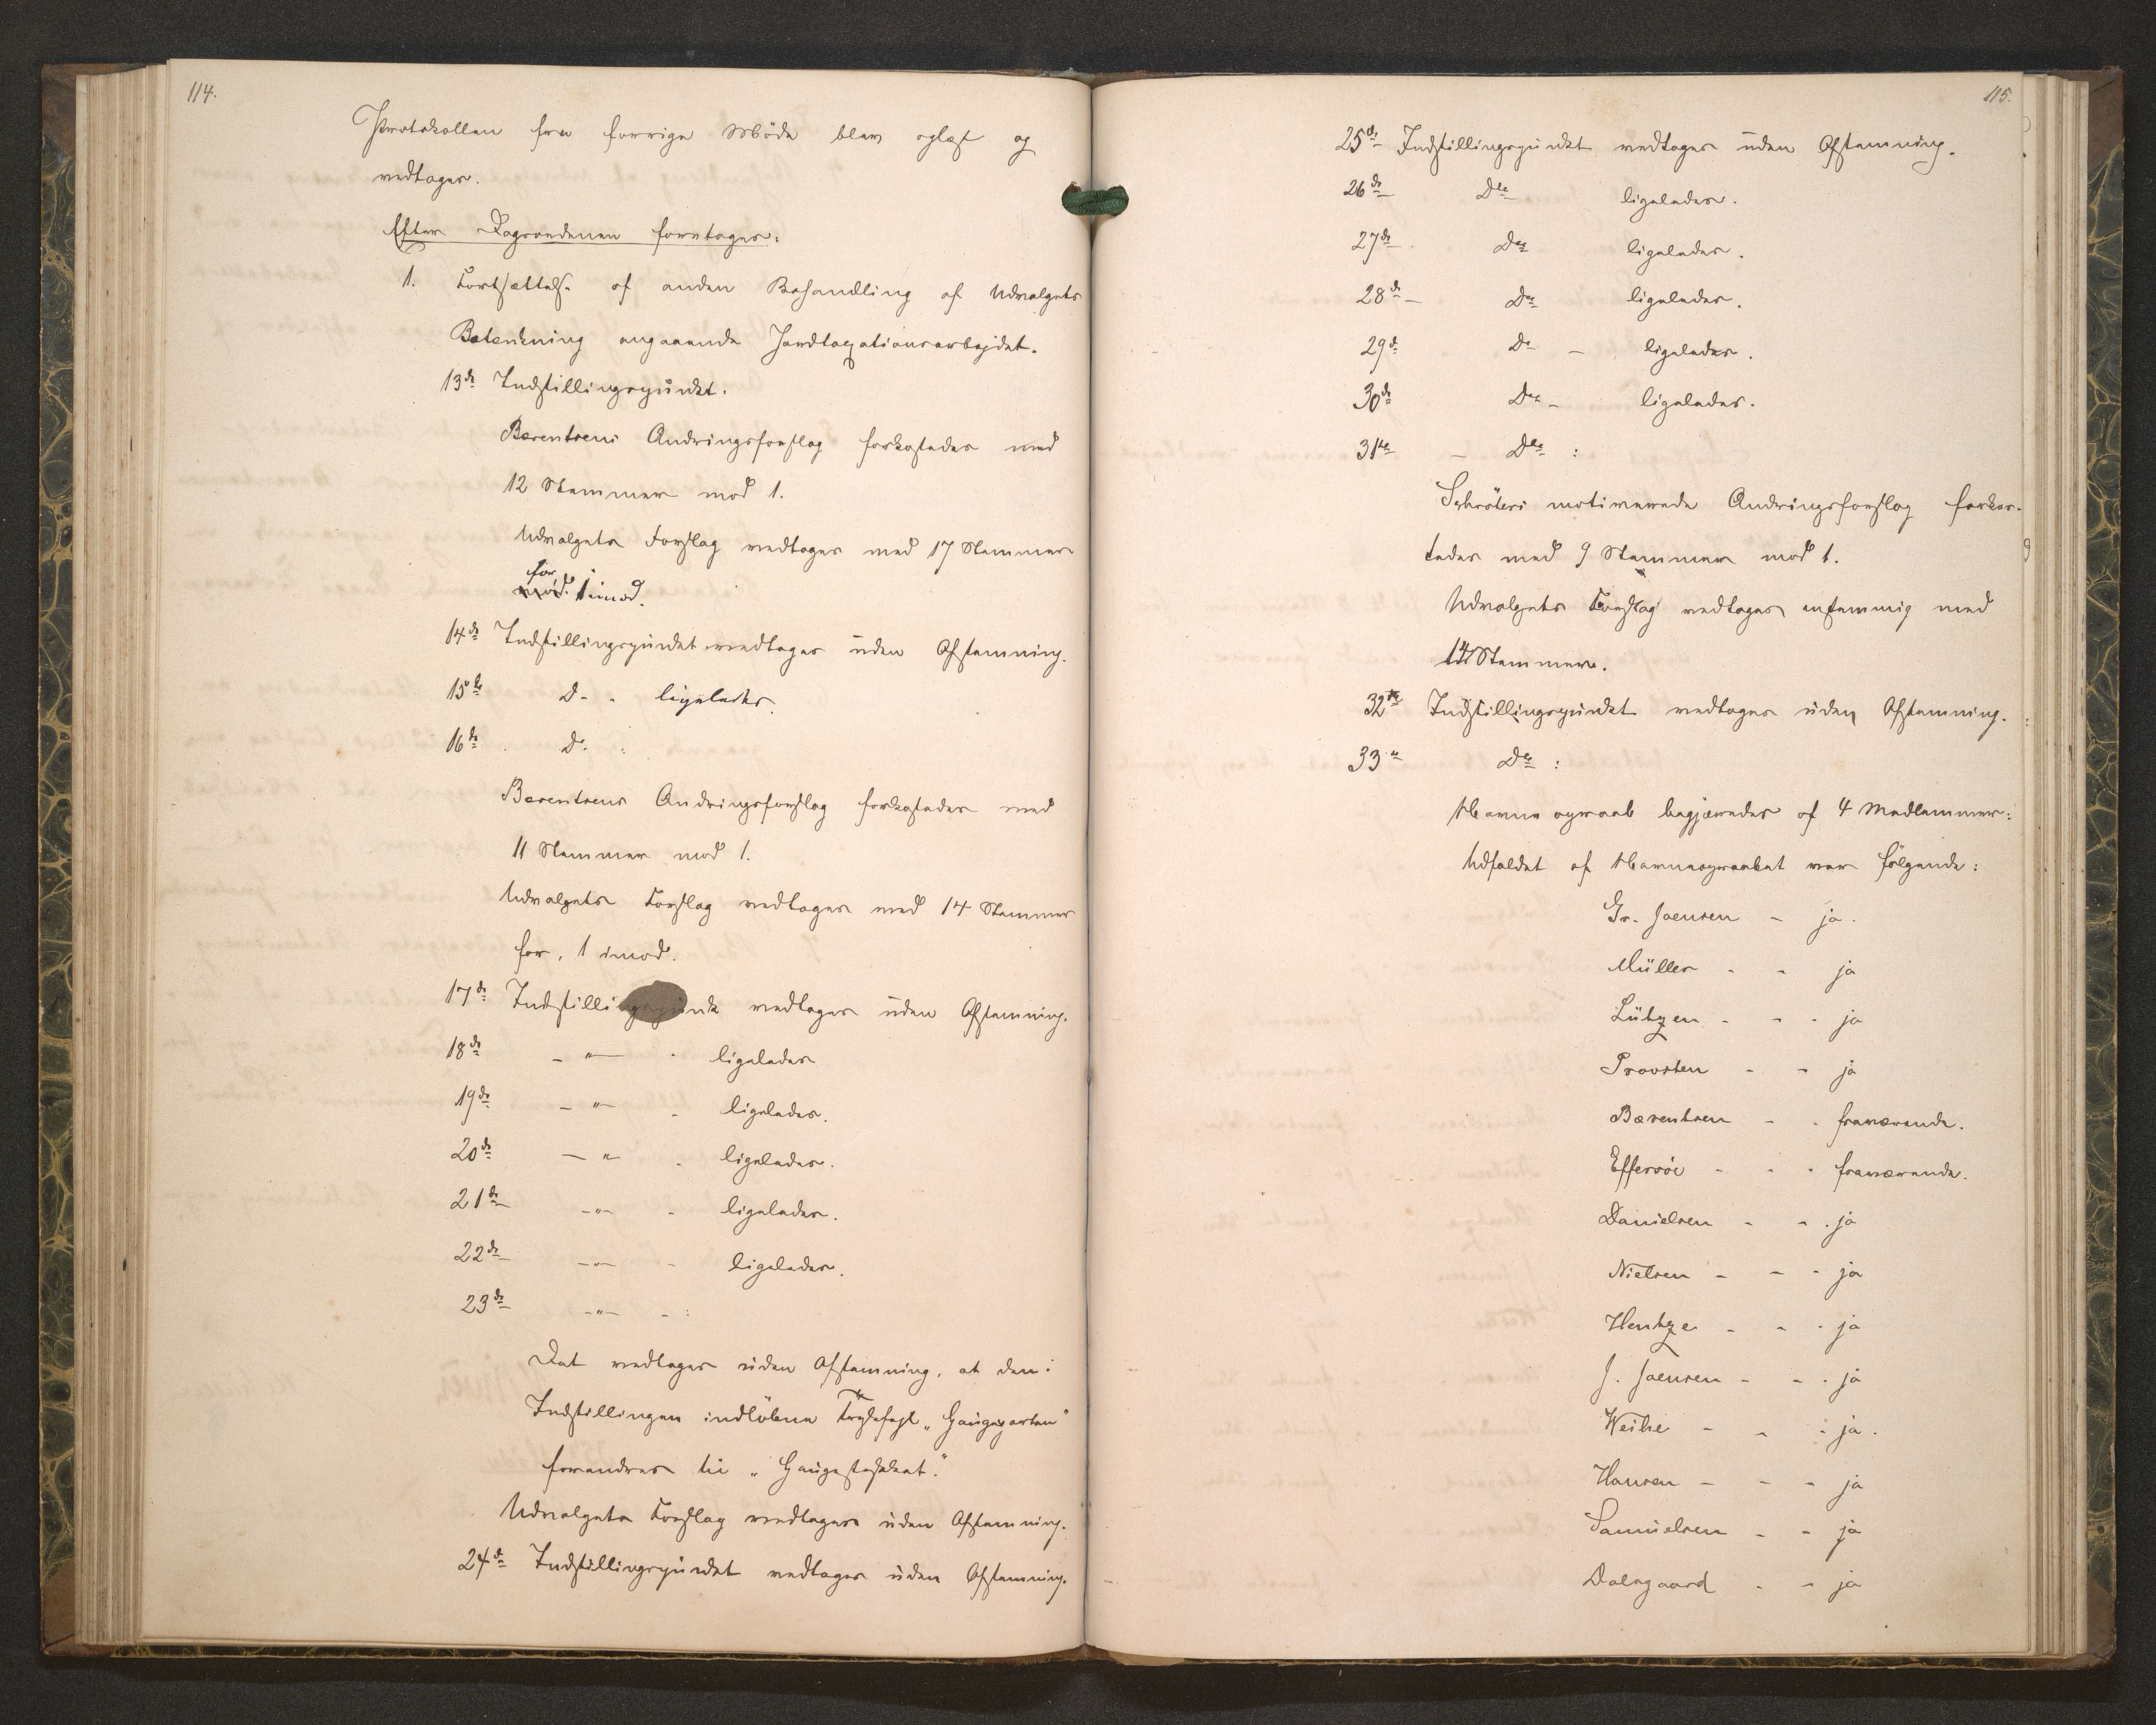 114.
Protokollen fra forrige Møde blev oplæst og
vedtages.
Efter Dagsordenen foretages:
1. Fortsættelse af anden Behandling af Udvalgets
Betænkning angaaende Jordtaxationsarbejdet.
13de Indstillingspunkt.
Bærentsens Ændringsforslag forkastedes med
12 Stemmer mod 1.
Udvalgets Forslag vedtages med 17 Stemmer
for
mod. 1 imod.
14de Indstillingspunkt vedtages uden Afstemning.
15de D. - ligeledes.
16de D. :
Bærentsens Ændringsforslag forkastedes med
11 Stemmer mod 1.
Udvalgets Forslag vedtages med 14 Stemmer
for, 1 imod.
17de Indstillingspunkt vedtages uden Afstemning.
18de - " - ligeledes
19de - " - ligeledes.
20de - " - ligeledes.
21de - " - ligeledes.
22de - " - ligeledes.
23de - " - :
Det vedtages uden Afstemning, at den i
Indstillingen indløbne Trykfejl „
forandres til „
Udvalgets Forslag vedtages uden Afstemning.
24de Indstillingspunkt vedtages uden Afstemning.
115.
25de Indstillingspunkt vedtages uden Afstemning.
26de Do ligeledes.
27de Do ligeledes.
28de - Do ligeledes.
29de Do - ligeledes.
30de Do - ligeledes.
31te - Do :
Schrøters motiverede Ændringsforslag forkas-
tedes med 9 Stemmer mod 1.
Udvalgets Forslag vedtages enstemmig med
Stemmer.
32te Indstillingspunkt vedtages uden Afstemning.
33te Do :
Navneopraab begjæredes af 4 Medlemmer:
Udfaldet af Navneopraabet var følgende:
Gr. Joensen - ja.
Müller - - ja
Lützen - - - ja
Provsten - - ja
Bærentsen - - fraværende.
Effersøe - - - fraværende.
Danielsen - - - ja
Nielsen - - - ja
Hentze - - - ja
J. Joensen - - - ja
Weihe - - - ja.
Hansen - - - ja
Samuelsen - - ja
Dalsgaard - - ja